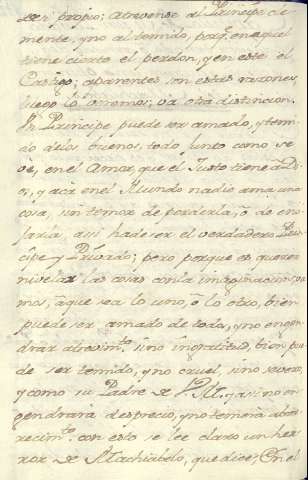 ser propio; atrevense al Principe cle
mente, y no al temido, porq. en aquel
tiene cierto el perdon, y en este el
Castigo; aparentes son estas razones,
luego lo veremos; va otra distincion.
Un Principe puede ser amado, y temi
do de los buenos, todo junto como se
vè, en el Amor, que el Justo tiene à Di
os, y acà en el Mundo nadie ama una
cosa, sin temor de perderla, ò de en
fadarla, asi hade ser el verdadero Prin
cipe y Privado; pero porque es querer
nivelar las cosas con la imaginacion, va
mos, à que sea lo uno, ò lo otro, bien
puede ser amado de todos, y no engen
drar atrevim.to sino ingratitud, bien pue
de ser temido, y no cruel, sino severo,
y como su Padre de V. M. y asi no en
gendrara desprecio, y no temerà abor
recim.to con esto se lee claro un her
ror de Machiabelo, que dice; En el